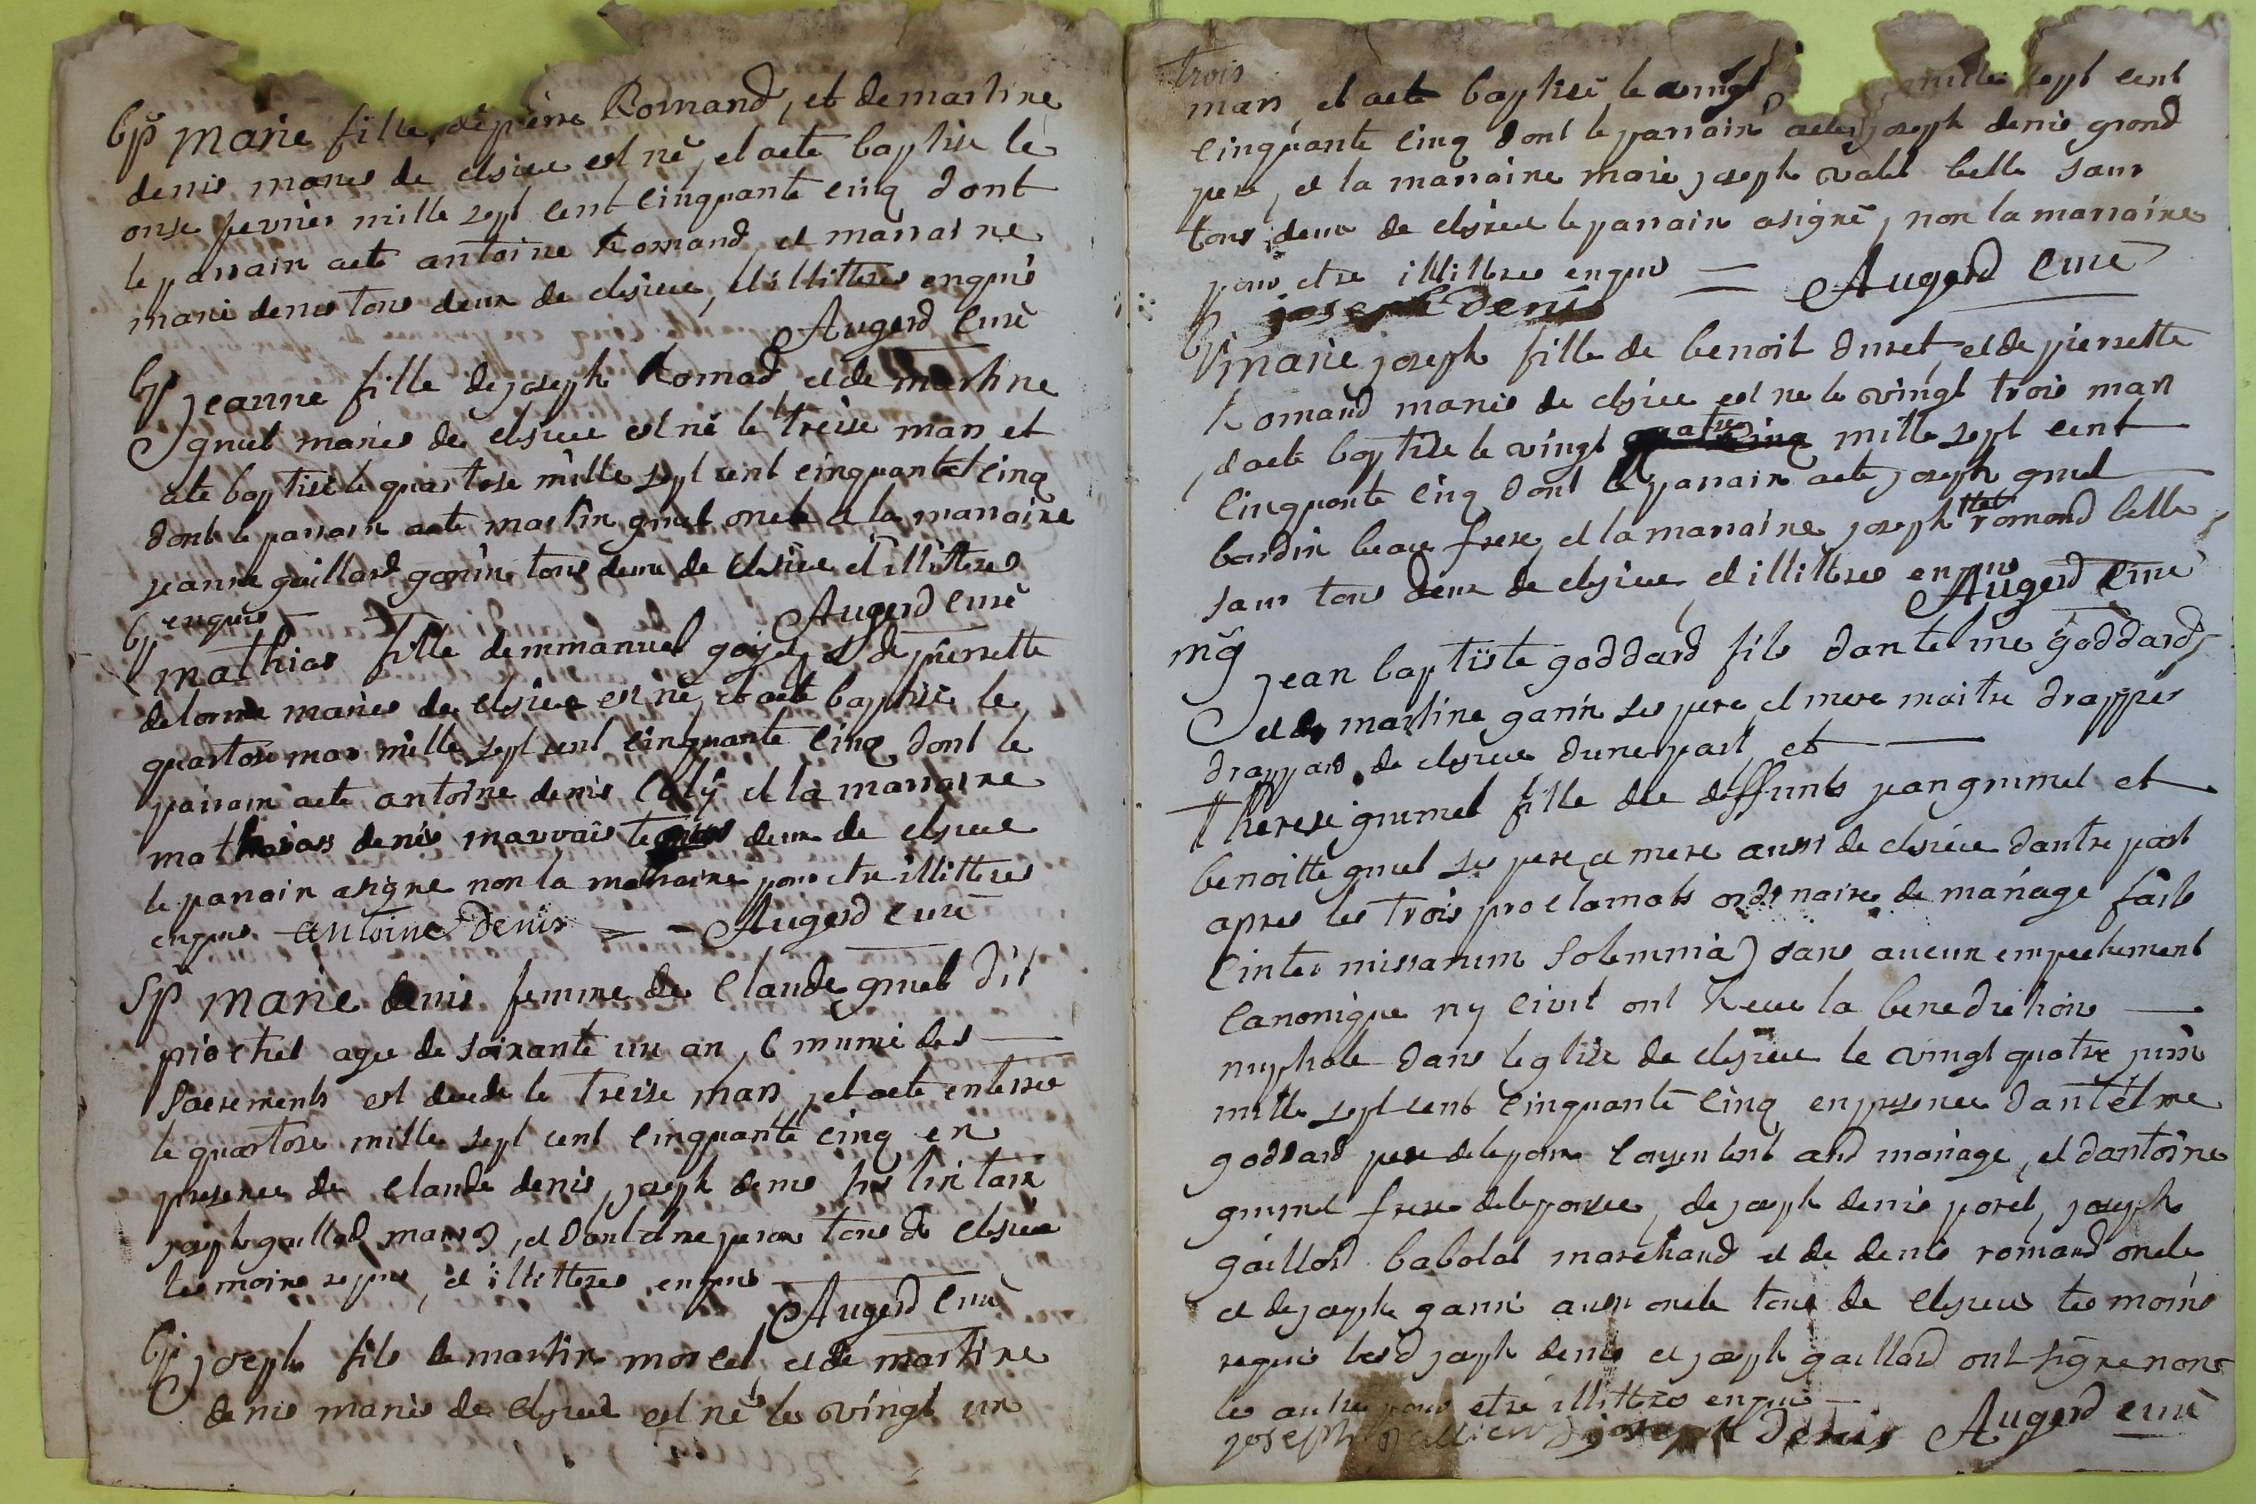 bp marie fille de pierre Romand, et de martine
denis maries de cleyrieu est né, et aeté baptisée le
onse fevrier mille sept cent cinquante cinq dont
le parrain aeté antoine Romand et marraine
marie denis tous deux de cleyrieu, et illitteres enquis
Augerd curé
bp jeanne fille de joseph Romad et de martine
gruel maries de cleyrieu est né le treise mars et
aeté baptisé le quartose mille sept cent cinquante cinq
dont le parrain aeté martin gruel oncle et la marraine
jeanne gaillard garin tous deux de cleyrieu et illitteres
enquis Augerd curé
bp mathias fille demmanuel goyet et de pierrette
delorme maries de cleyrieu est né, et aeté baptisée le
quartose mars mille sept cent cinquante cinq dont le
parrain aeté antoine denis et la marraine
mathias denis mauvais deux de cleyrieu
le parrain asigné non la marraine pour etre illitteres
enquis antoine Denis Augerd curé
sp marie denis femme de claude gruel dit
piochet agee de soixante un an, munie des
sacrements est decedé le treise mars, et aeté enterree
le quartose mille sept cent cinquante cinq en
presence de claude denis, joseph denis
joseph gaillard tous de cleyrieu
temoins requis, et illitteres enquis
Augerd curé
bp joseph fils de martin morel et de martine
denis maries de cleyrieu est né le vingt un
trois
mars, et aeté baptisé le vingt mille sept cent
cinquante cinq dont le parrain aeté joseph denis grond
pere, et la marraine marie joseph valet belle saur
tous deux de cleyrieu le parrain asigné, non la marraine
pour etre illitteres enquis Augerd curé
joseph Denis
bp marie joseph fille de benoit duret, et de pierrette
Romand maries de cleyrieu est né le vingt trois mars
et aeté baptisée le vingt quatre mille sept cent
cinquonte cinq dont le parrain aeté joseph gruel
bardin beau frere, et la marraine joseph romond belle
saur tous deux de cleyrieu et illitteres enquis
Augerd curé
mg jean baptiste goddard fils dantelme goddard
et de martine garin ses pere et mere maitre drappier
drappard de cleyrieu dune part, et
Therese grumel fille de deffunts jean grumel et
benoitte gruel ses pere et mere aussi de cleyrieu dautre part
apres les trois proclamats ordinaires de mariage faits
(inter missarum solemnia) sans aucun empechement
canonique ny civil ont Receu la benediction
nuptiale dans leglise de cleyrieu le vingt quatre juin
mille sept cent cinquante cinq en presence dantelme
goddard pere delepoux consentant aud mariage, et dantoine
grumel frere delepouse, de joseph denis poret, joseph
gaillard babolat marchand et de denis romand oncle
et de joseph garin aussi oncle tous de cleyrieu temoins
requis lesd joseph denis et joseph gaillard ont signe non
les autres pour etre illitteres enquis
joseph joseph Denis Augerd curé